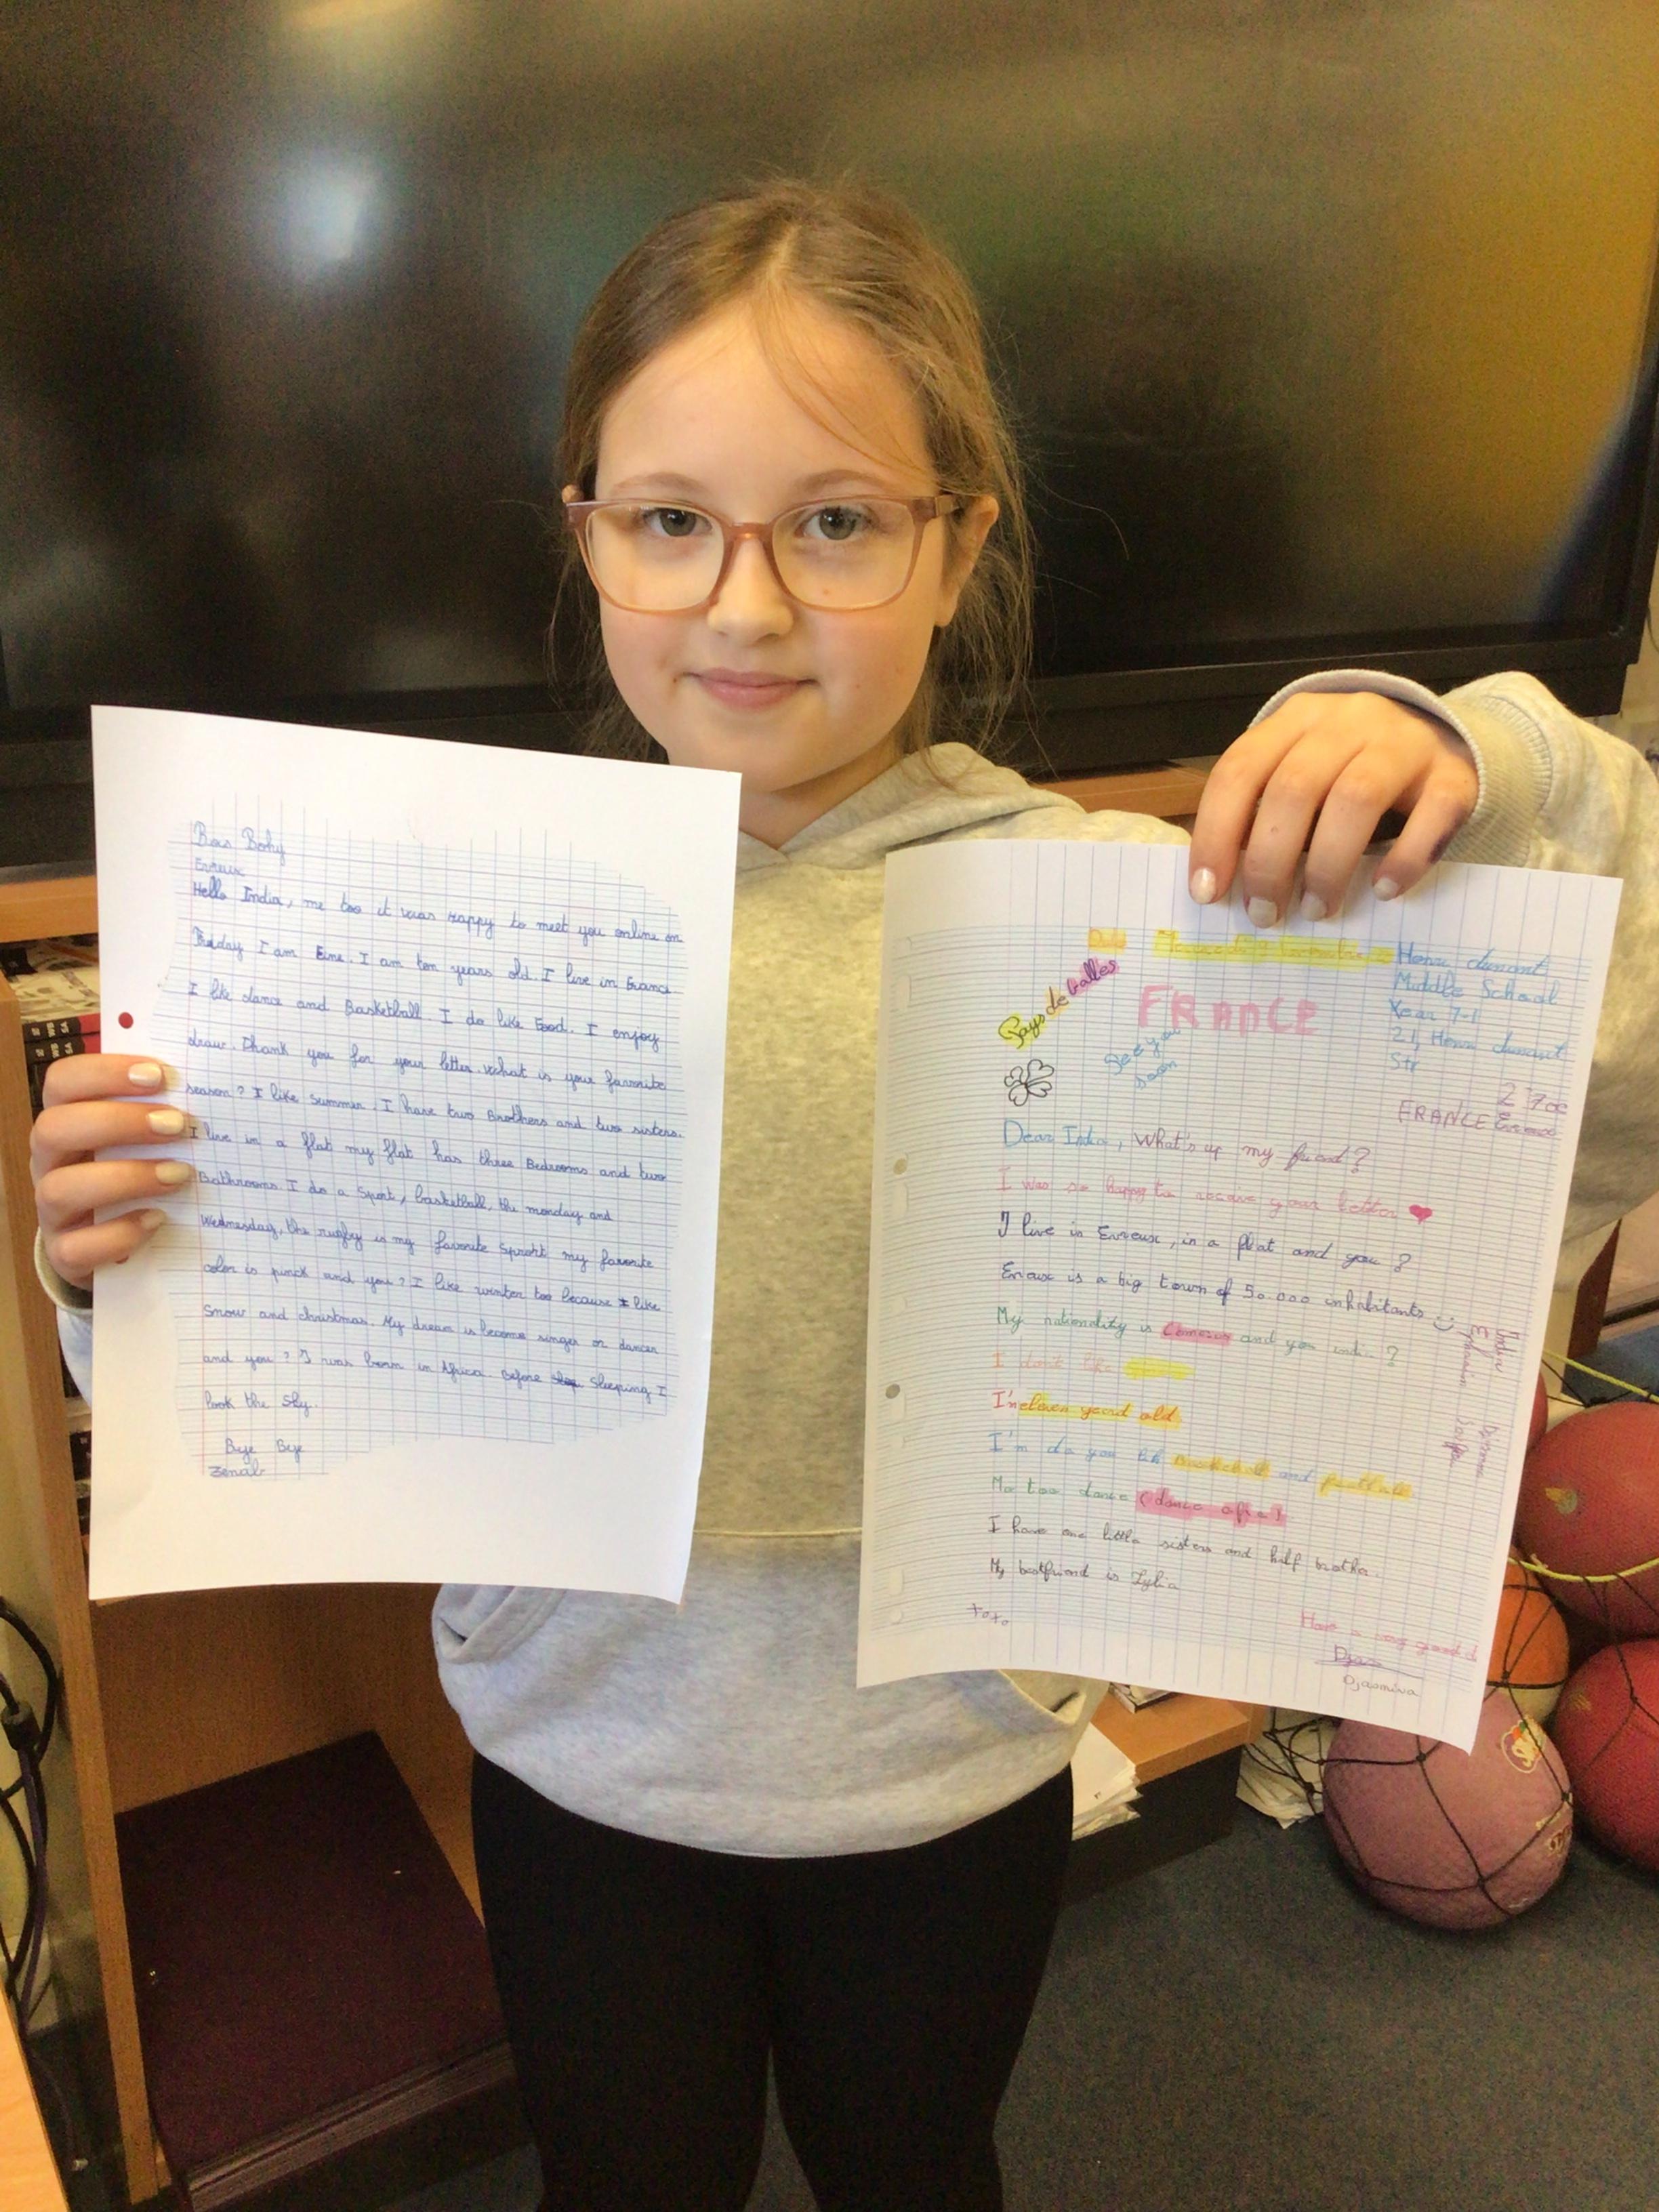 Bois Bohy
Evreux
Hello India, me too it was happy to meet you online on
Friday I am Eine. I am ten years old. I live in France
I like dance and Basketball. I do like Food. I enjoy
draw. Thank you for your letter. what is your favorite
season? I like summer. I have two Brothers and two sisters.
I live in a flat my flat has three Bedrooms and two
Bathrooms. I do a Sport, basketball, the monday and
Wednesday, the rugby is my favorite Sproht my favorite
color is pinck and you? I like winter too because I like
Snow and christmas. My dream is become singer or dancer
and you? I was born in Africa. Before sleeping I
look the sky.
Bye Bye
Zenab
Pays de Galles
FRANCE
See you
soon
Henri dunant
Middle School
Year 7-1
21, Henri dunant
Str
FRANCE Evreux
Dear India, What's up my friend?
I was so happy to receive your letter
I live in Evreux, in a flat and you?
Evreux is a big town of 50.000 inhabitants
My nationality is Comorus and you india?
I don't like
I'm eleven yeard old
I'm do you lik Basketball and football
Me too dance (dance afro)
I have one little sisters and half brother.
My bestfriend is Lylia
xoxo
Have a very good d
Djas
Djasmina